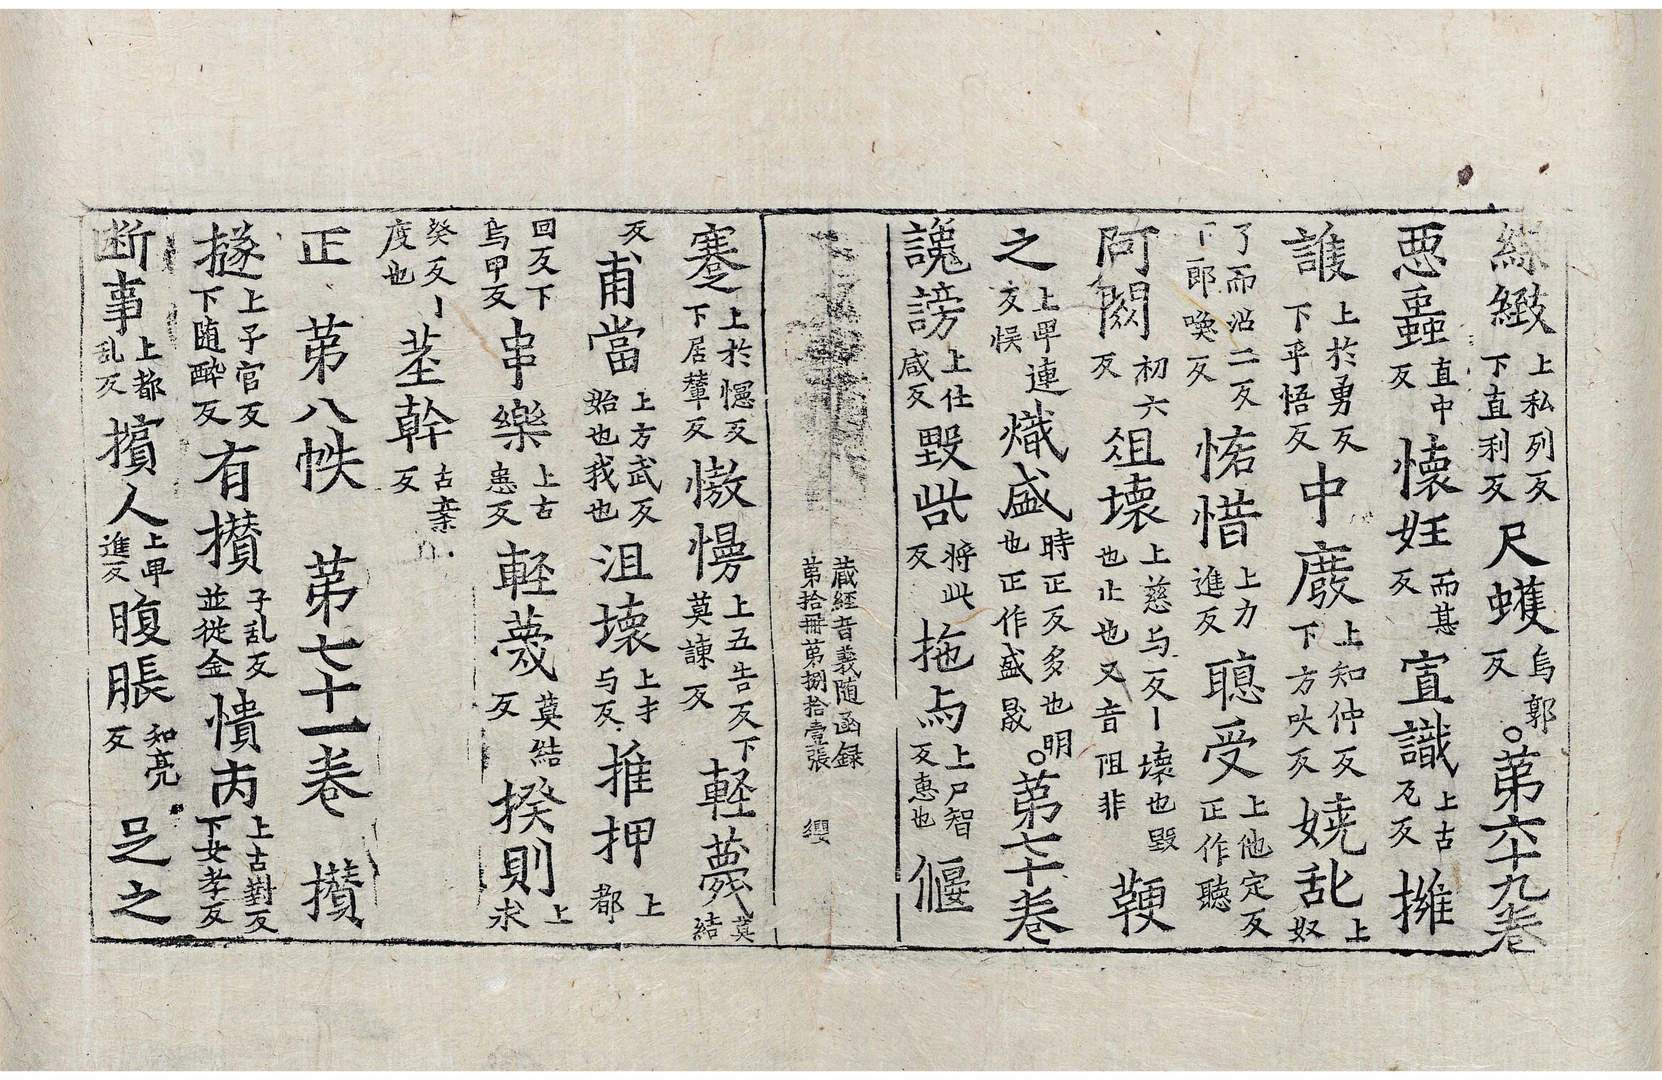 緻上私列反下直利反尺蠖烏郭反。苐六十九卷
惡蟲直中反懷妊而甚反宣識上古乃反擁
護上於勇反下乎悟反中廢上知仲反下方吠反嬈乱上奴
了而沼二反下郎喚反悋惜上力進反聽受上他定反正作聽
阿閦初六反俎壊上慈与反丨壊也毀也止也又音阻非鞕
之上䍐連反悮熾盛時正反多也明也正作盛晟。苐七十卷
讒謗上仕咸反毀呰將此反拖与上尸智反惠也偃
藏經音義随函録
苐拾冊苐捌拾壹張 纓
蹇上於幰反下居輦反憿慢上五告反下莫諫反軽蔑莫結
反甫當上方武反始也我也沮壊上才与反推押上都
回反下烏甲反串樂上古患反軽蔑莫結反揆則上求
癸反丨度也莖幹古案反
正苐八帙 苐七十一卷 攢
㩞上子官反下随酔反有攢子乱反並從金憒丙上古對反下女孝反
断事上都乱反擯人上卑進反腹脹知亮反足之